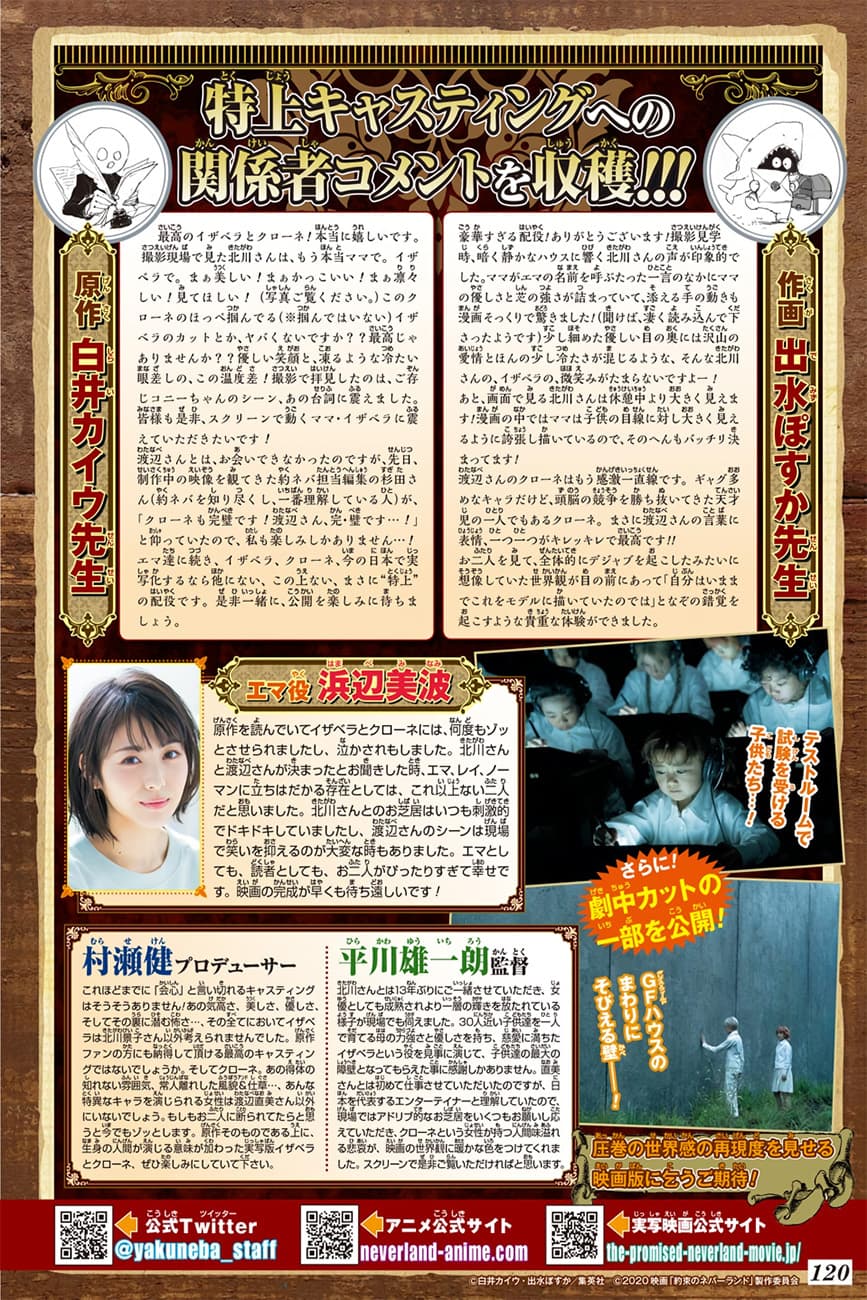 特上キャスティングへの
関係者コメントを収穫!!!
原作 白井カイウ先生
最高のイザベラとクローネ!本当に嬉しいです。
撮影現場で見た北川さんは、もう本当ママで。イザ
ベラで。まぁ美しい!まぁかっこいい!まぁ凛々
しい!見てほしい!(写真ご覧ください。)このク
ローネのほっぺ掴んでる(※掴んではいない)イザ
ベラのカットとか、ヤバくないですか??最高じゃ
ありませんか??優しい笑顔と、凍るような冷たい
眼差しの、この温度差!撮影で拝見したのは、ご存
じコニーちゃんのシーン、あの台詞に震えました。
皆様も是非、スクリーンで動くママ・イザベラに震
えていただきたいです!
渡辺さんとは、お会いできなかったのですが、先日、
制作中の映像を観てきた約ネバ担当編集の杉田さ
ん(約ネバを知り尽くし、一番理解している人)が、
「クローネも完璧です!渡辺さん、完・璧です…!」
と仰っていたので、私も楽しみしかありません…!
エマ達に続き、イザベラ、クローネ、今の日本で実
写化するなら他にない、この上ない、まさに“特上”
の配役です。是非一緒に、公開を楽しみに待ちま
しょう。
作画 出水ぽすか先生
豪華すぎる配役!ありがとうございます!撮影見学
時、暗く静かなハウスに響く北川さんの声が印象的で
した。ママがエマの名前を呼ぶたった一言のなかにママ
の優しさと芝の強さが詰まっていて、添える手の動きも
漫画そっくりで驚きました!(聞けば、凄く読み込んで下
さったようです)少し細めた優しい目の奥には沢山の
愛情とほんの少し冷たさが混じるような、そんな北川
さんの、イザベラの、微笑みがたまらないですよー!
あと、画面で見る北川さんは休憩中より大きく見えま
す!漫画の中ではママは子供の目線に対し大きく見え
るように誇張し描いているので、そのへんもバッチリ決
まってます!
渡辺さんのクローネはもう感激一直線です。ギャグ多
めなキャラだけど、頭脳の競争を勝ち抜いてきた天才
児の一人でもあるクローネ。まさに渡辺さんの言葉に
表情、一つ一つがキレッキレで最高です!!
お二人を見て、全体的にデジャブを起こしたみたいに
想像していた世界観が目の前にあって「自分はいまま
でこれをモデルに描いていたのでは」となぞの錯覚を
起こすような貴重な体験ができました。
エマ役 浜辺美波
原作を読んでいてイザベラとクローネには、何度もゾッ
とさせられましたし、泣かされもしました。北川さん
と渡辺さんが決まったとお聞きした時、エマ、レイ、ノー
マンに立ちはだかる存在としては、これ以上ない二人
だと思いました。北川さんとのお芝居はいつも刺激的
でドキドキしていましたし、渡辺さんのシーンは現場
で笑いを抑えるのが大変な時もありました。エマとし
ても、読者としても、お二人がぴったりすぎて幸せで
す。映画の完成が早くも待ち遠しいです!
テストルームで
試験を受ける
子供たち…!
さらに!
劇中カットの
一部を公開!
GFハウスの
まわりに
そびえる壁——!
村瀬健プロデューサー
これほどまでに「会心」と言い切れるキャスティング
はそうそうありません!あの気高さ、美しさ、優しさ、
そしてその裏に潜む怖さ…、その全てにおいてイザベ
ラは北川景子さん以外考えられませんでした。原作
ファンの方にも納得して頂ける最高のキャスティン
グではないでしょうか。そしてクローネ。あの得体の
知れない雰囲気、常人離れした風貌&仕草…、あんな
特異なキャラを演じられる女性は渡辺直美さん以外
にいないでしょう。もしもお二人に断られてたらと思
うと今でもゾッとします。原作そのものである上に、
生身の人間が演じる意味が加わった実写版イザベラ
とクローネ、ぜひ楽しみにしていて下さい。
平川雄一朗監督
北川さんとは13年ぶりにご一緒させていただき、女
優としても成熟されより一層の輝きを放たれている
様子が現場でも伺えました。30人近い子供達を一人
で育てる母の力強さと優しさを持ち、慈愛に満ちた
イザベラという役を見事に演じて、子供達の最大の
障壁となってもらえた事に感謝しかありません。直美
さんとは初めて仕事させていただいたのですが、日
本を代表するエンターテイナーと理解していたので、
現場ではアドリブ的なお芝居をいくつもお願いし応
えていただき、クローネという女性が持つ人間味溢れ
る悲哀が、映画の世界観に暖かな色をつけてくれま
した。スクリーンで是非ご覧いただければと思います。
圧巻の世界感の再現度を見せる
映画版に乞うご期待!
公式Twitter
@yakuneba_staff
アニメ公式サイト
neverland-anime.com
実写映画公式サイト
the-promised-neverland-movie.jp/
120
©白井カイウ・出水ぽすか/集英社 ©2020 映画「約束のネバーランド」製作委員会